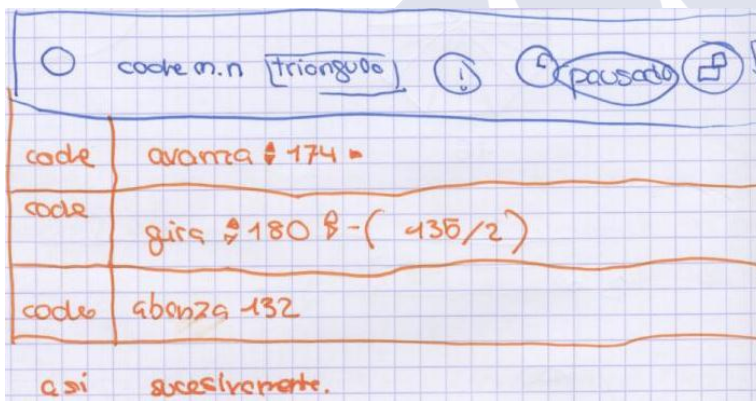 code m.n triangudo ! pausado
code avanza 174
code gira 180 - ( 135/2)
code abanza 132
asi sucesivamente.